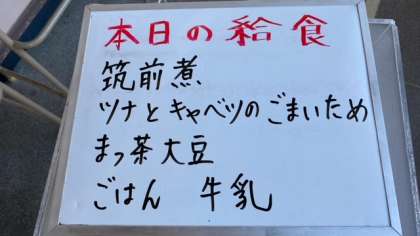 本日の給食
筑前煮
ツナとキャベツのごまいため
まっ茶大豆
ごはん 牛乳